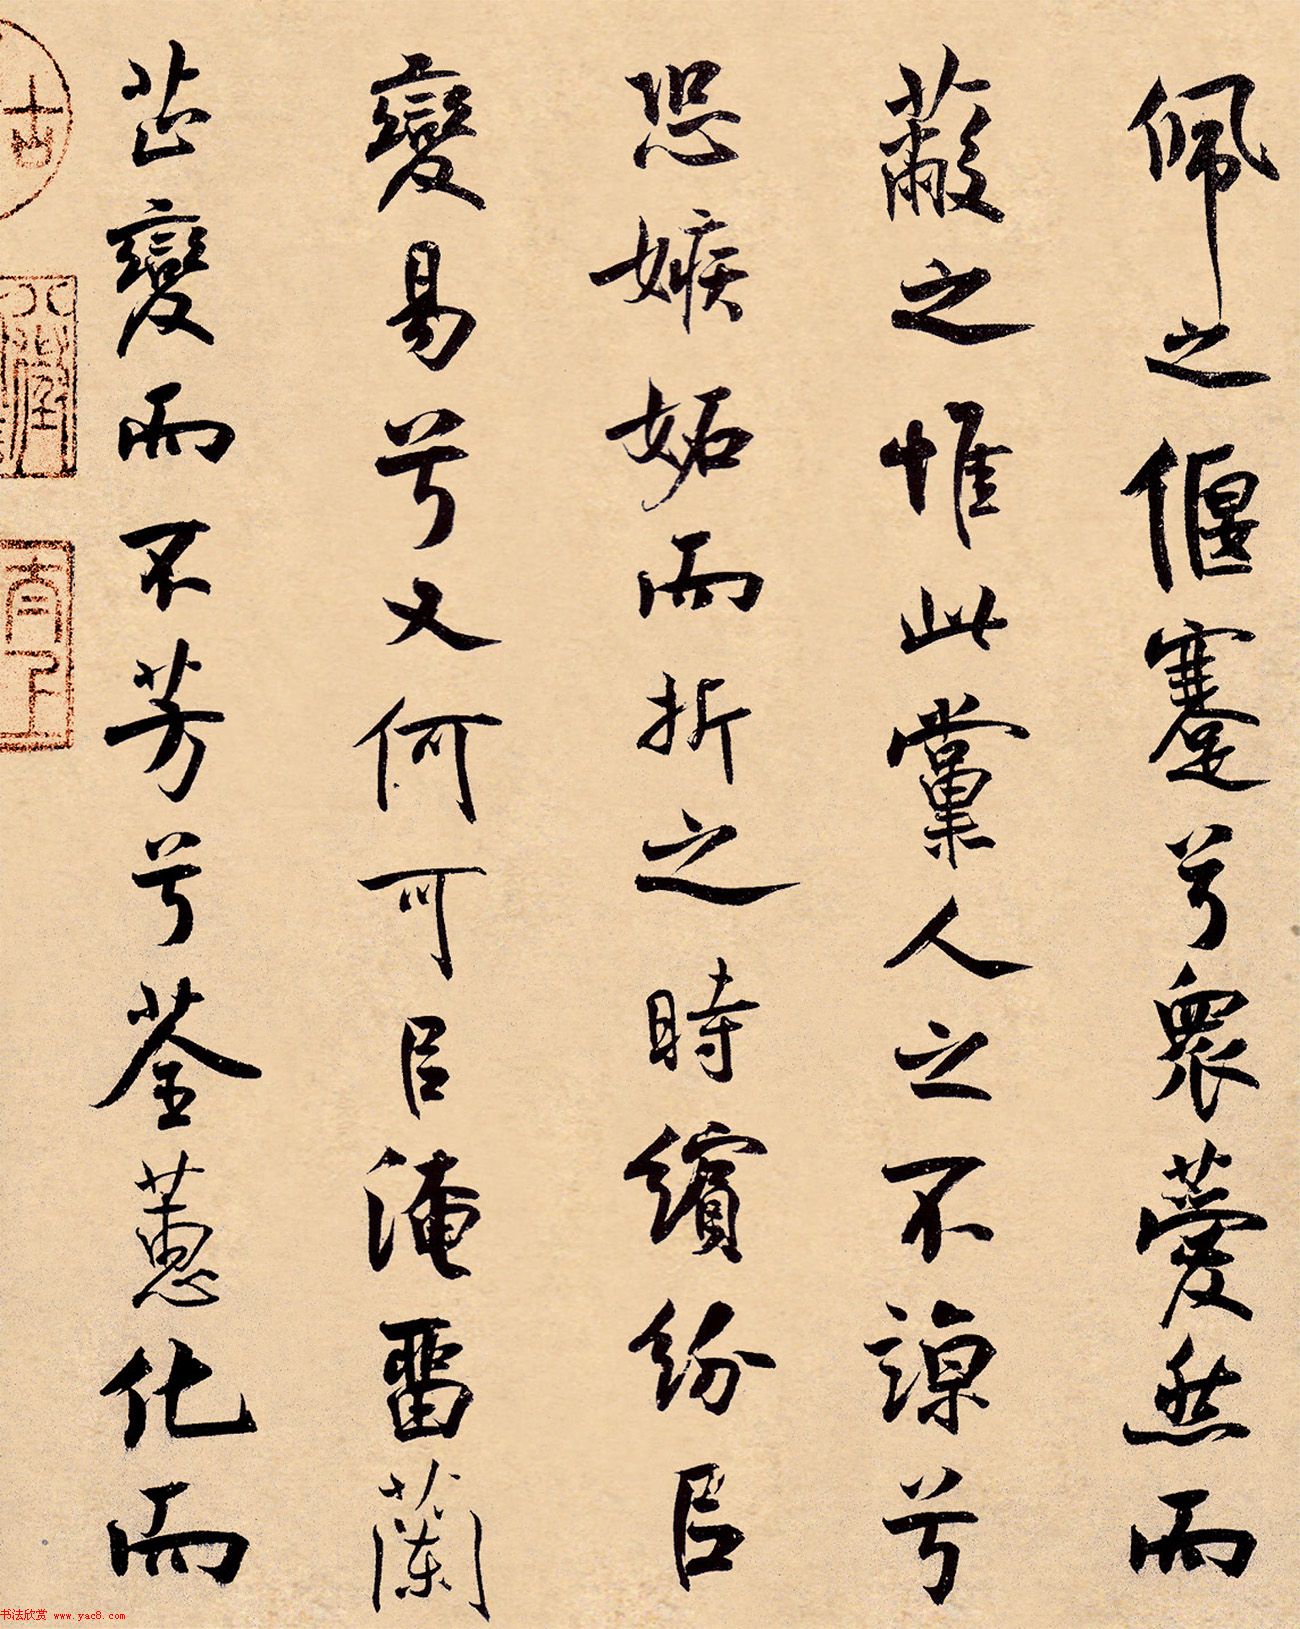 佩之偃蹇兮衆薆然而
蔽之惟此黨人之不諒兮
恐嫉妬而折之時繽紛㠯
變易兮又何可㠯淹畱蘭
芷變而不芳兮荃蕙化而
书法欣赏 www.yac8.com